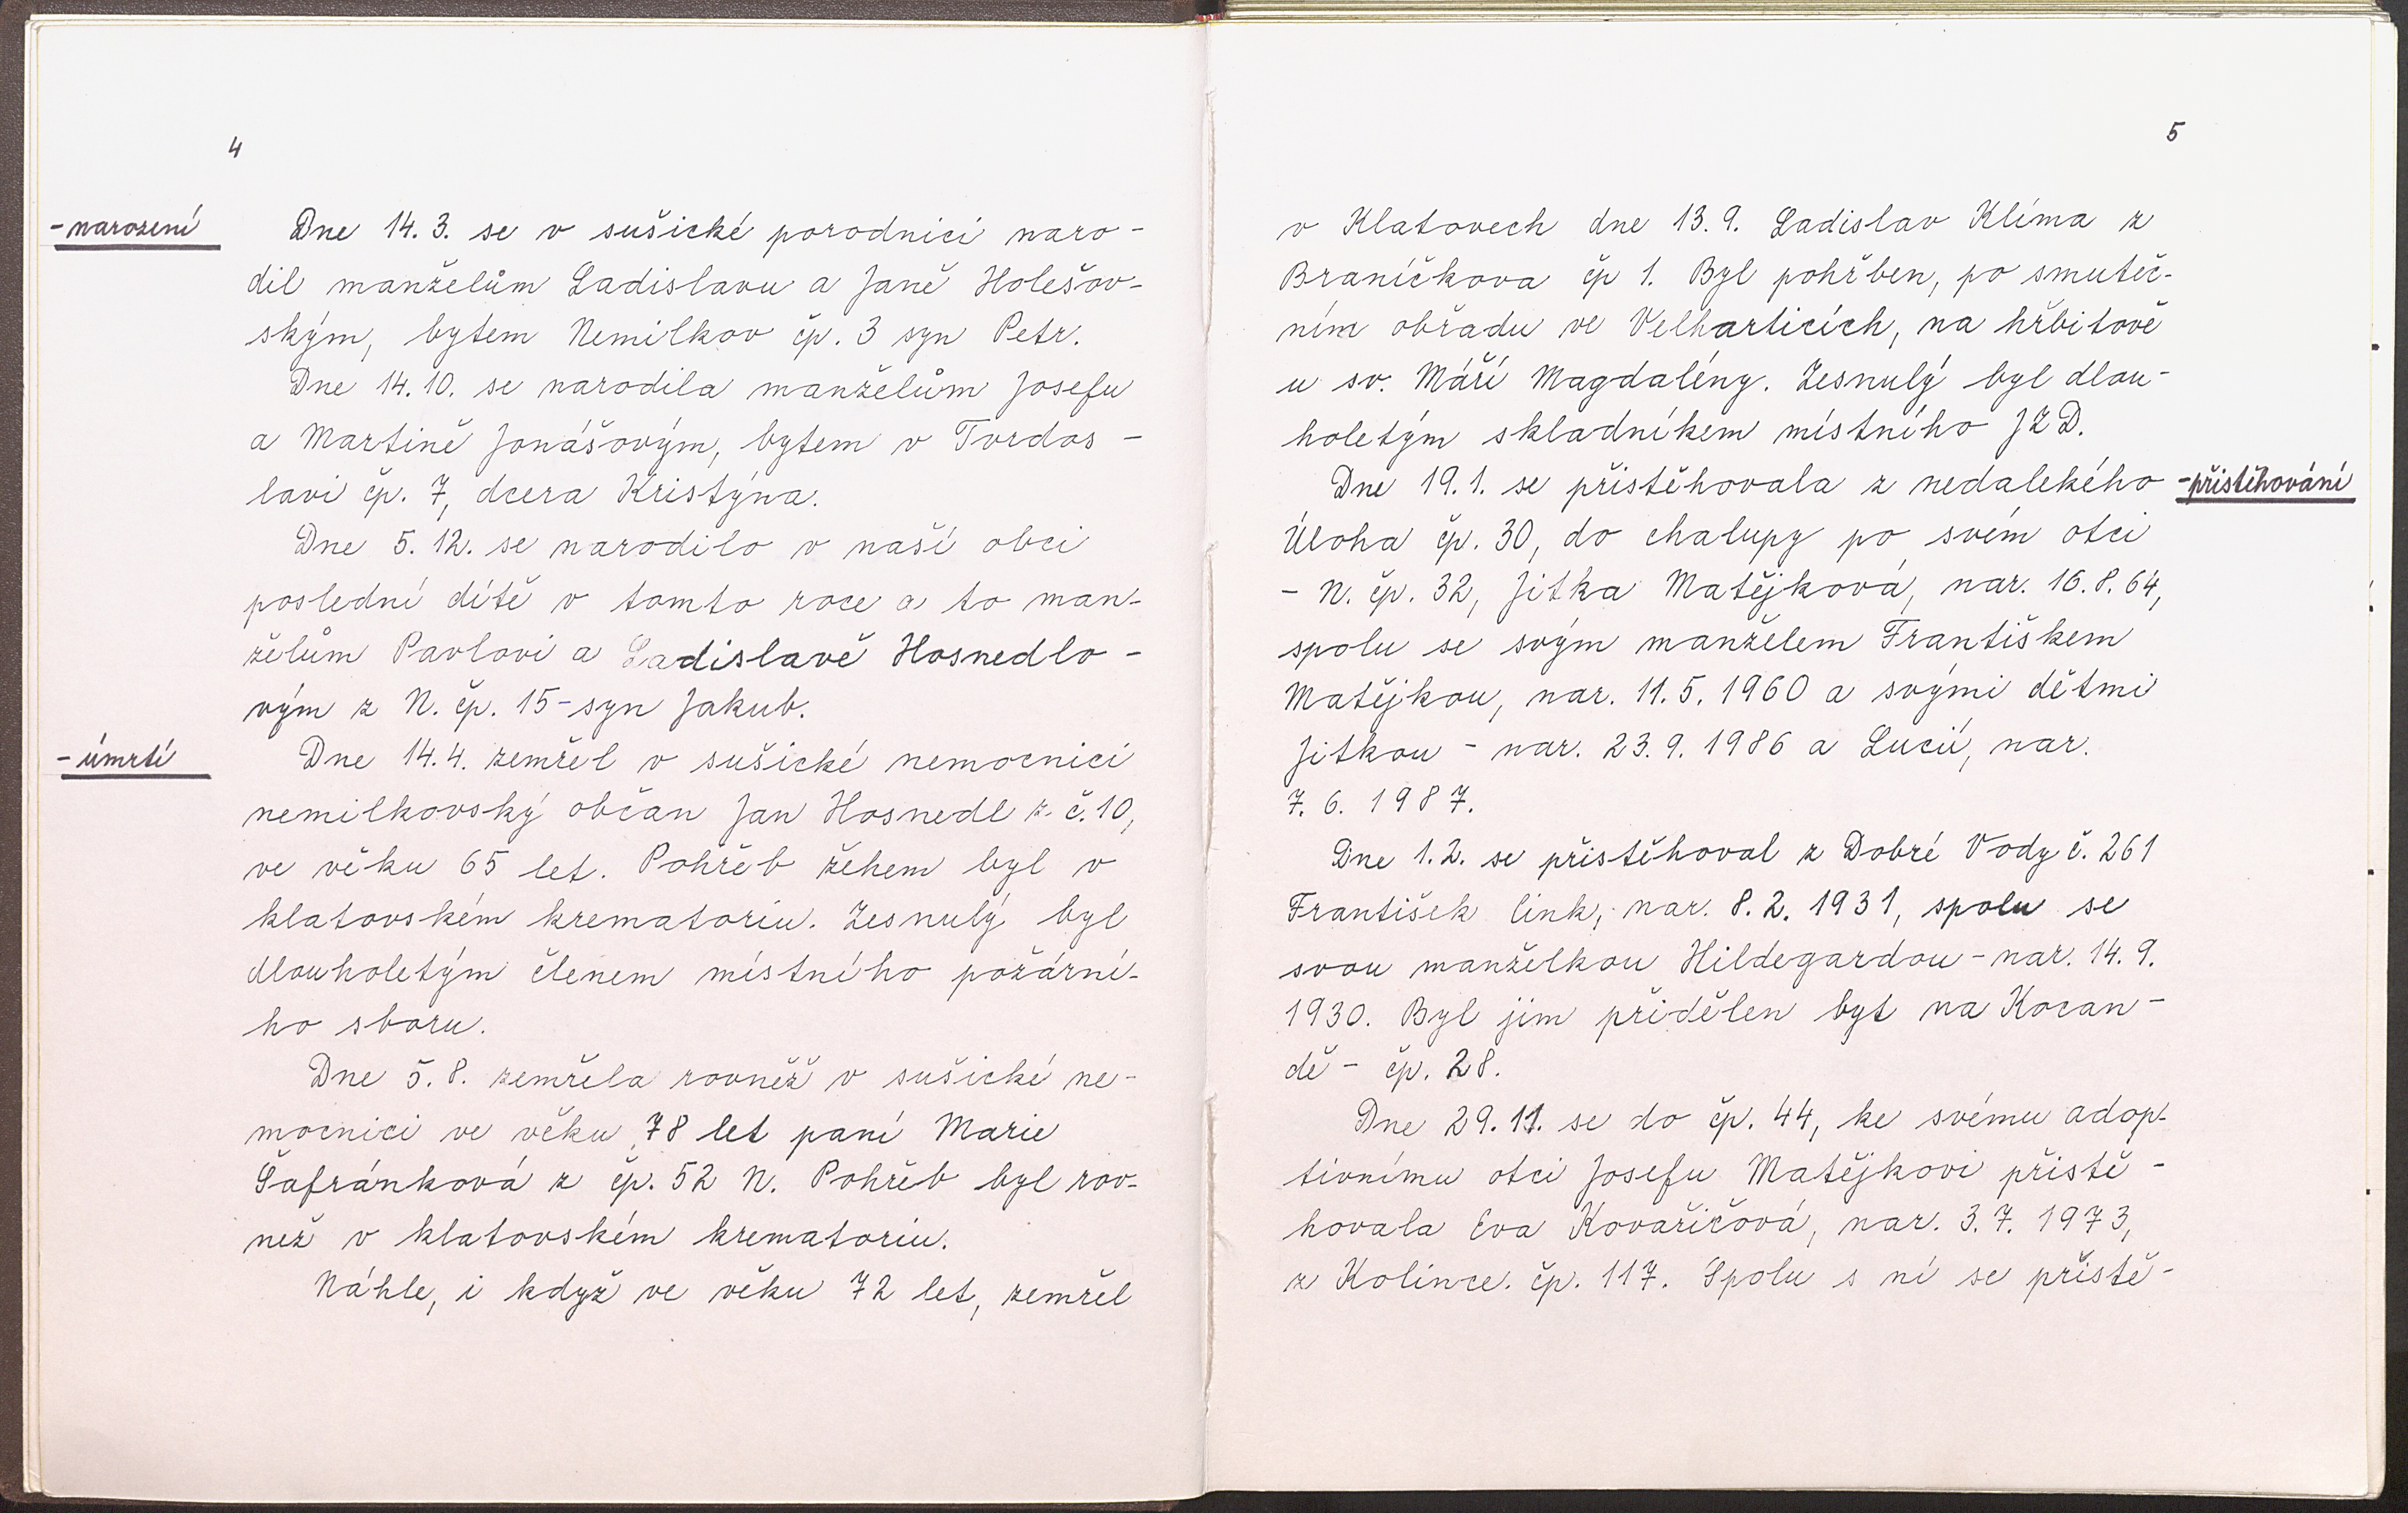 4
-narození
Dne 14. 3. se v sušické porodnici naro-
dil manželům Ladislavu a Janě Holešov-
ským, bytem Nemilkov čp. 3 syn Petr.
Dne 14. 10. se narodila manželům Josefu
a Martině Jonášovým, bytem v Tvrdos-
lavi čp. 7, dcera Kristýna.
Dne 5. 12. se narodilo v naší obci
poslední dítě v tomto roce a to man-
želům Pavlovi a Ladislavě Hosnedlo-
vým z N. čp. 15-syn Jakub.
-úmrtí
Dne 14. 4. zemřel v sušické nemocnici
nemilkovský občan Jan Hosnedl z č. 10,
ve věku 65 let. Pohřeb žehem byl v
klatovském krematoriu. Zesnulý byl
dlouholetým členem místního požární-
ho sboru.
Dne 5. 8. zemřela rovněž v sušické ne-
mocnici ve věku 78 let paní Marie
Šafránková z čp. 52 N. Pohřeb byl rov-
něž v klatovském krematoriu.
Náhle, i když ve věku 72 let, zemřel
5
v Klatovech dne 13. 9. Ladislav Klíma z
Braníčkova čp 1. Byl pohřben, po smuteč-
ním obřadu ve Velharticích, na hřbitově
u sv. Máří Magdalény. Zesnulý byl dlou-
holetým skladníkem místního JZD.
Dne 19. 1. se přistěhovala z nedalekého
-přistěhování
Úloha čp. 30, do chalupy po svém otci
- N. čp. 32, Jitka Matějková, nar. 16. 8. 64,
spolu se svým manželem Františkem
Matějkou, nar. 11. 5. 1960 a svými dětmi
Jitkou - nar. 23. 9. 1986 a Lucií, nar.
7. 6. 1987.
Dne 1. 2. se přistěhoval z Dobré Vody č. 261
František Cink, nar. 8. 2. 1931, spolu se
svou manželkou Hildegardou - nar. 14. 9.
1930. Byl jim přidělen byt na Kocan-
dě - čp. 28.
Dne 29. 11. se do čp. 44, ke svému adop-
tivnímu otci Josefu Matějkovi přistě-
hovala Eva Kovaříčová, nar. 3. 7. 1973,
z Kolince. čp. 117. Spolu s ní se přistě-